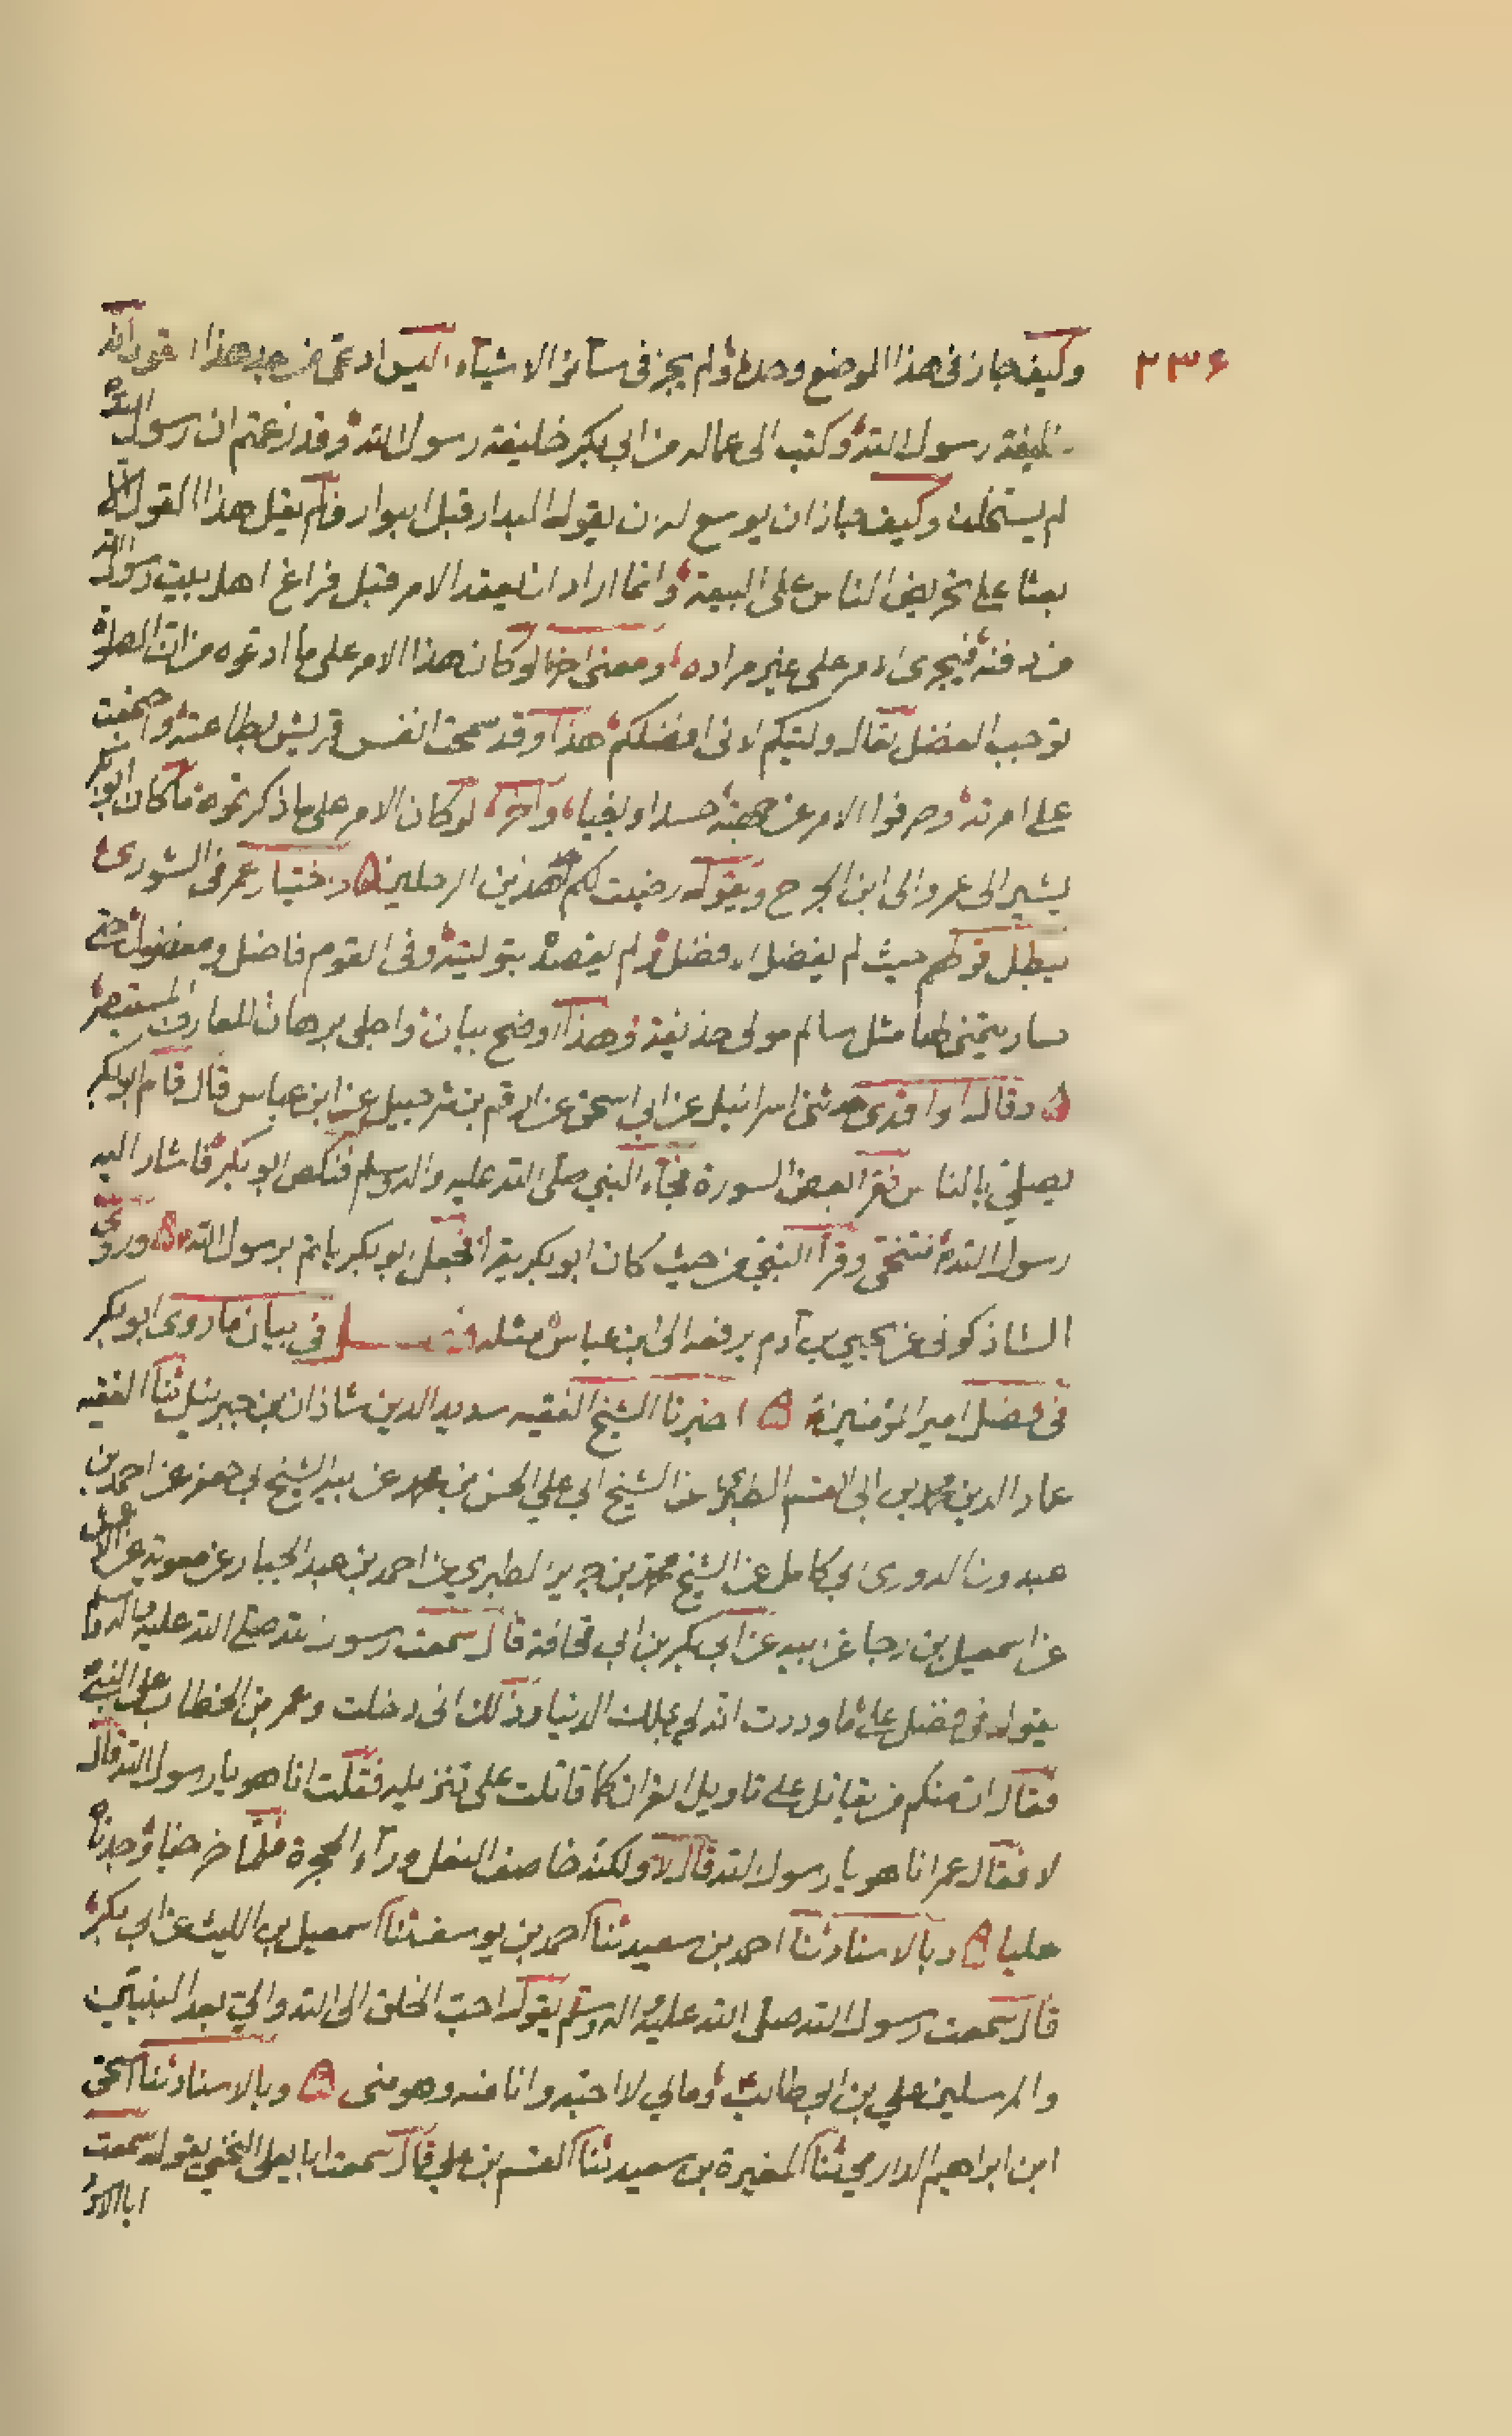 ٢٣٦
وكيف جاز في هذا الموضع وحده ولم يجز في سائر الاشياء اليس ادعى من بعد هذا
خليفة رسول الله وكتب الى عماله من ابي بكر خليفة رسول الله وقد زعمتم ان رسول الله
لم يستخلف وكيف جاز ان يوسع له ان يقول البدار قبل البوار فلم يقل هذا القول الا
بعثا على تحريض الناس على البيعة وانما اراد ان يعقد الامر قبل فراغ اهل بيت رسول الله
من دفنه فيجرى الامر على غير مراده ومعنى اخر لو كان هذا الامر على ما ادعوه من ان الصلوة
توجب الفضل لقال وليتكم لانى افضلكم هذا وقد سمحت انفس قريش بطاعته واجمعت
على امرته وصرفوا الامر عن جهته حسدا وبغيا واخر لو كان الامر على ما ذكرتموه ما كان ابو بكر
يشير الى عمر والى ابن الجرح ويقول رضيت لكم احد هذين الرجلين واختيار عمر في الشورى
يبطل قولهم حيث لم يفضل فضل ولم يقصد بتوليته وفى القوم فاضل ومفضول حتى
صار يتمنى لها مثل سالم مولى حذيفة وهذا اوضح بيان واجلى برهان للعارف المستبصر
وقال الواقدى حدثنى اسرائيل عن ابي اسحق عن ارقم بن شرحبيل عن ابن عباس قال قام ابو بكر
يصلي بالناس فقرا بعض السورة فجاء النبي صلى الله عليه واله وسلم فنكص ابو بكر فاشار اليه
رسول الله فتنحى وقرأ النبي من حيث كان ابو بكر يقرا فجعل ابو بكر ياتم برسول الله وروى
الشاذكوني عن يحيي بن آدم يرفعه الى ابن عباس مثله فصل في بيان ما روى ابو بكر
في فضل امير المؤمنين اخبرنا الشيخ الفقيه سديد الدين شاذان بن جبرئيل ثنا الفقيه
عماد الدين محمد بن ابي القسم الطبرى عن الشيخ ابي علي الحسن بن محمد عن ابيه الشيخ ابي جعفر عن احمد بن
عبدون الدورى ابي كامل عن الشيخ محمد بن جرير الطبري عن احمد بن عبد الجبار عن معوية عن الاعمش
عن اسمعيل بن رجا عن ابيه عن ابي بكر بن ابي قحافة قال سمعت رسول الله صلى الله عليه واله وسلم
يقول في فضل علي ما وددت انه لم بملك الدنيا وذلك انى دخلت وعمر بن الخطاب على النبي
فقال ان منكم من يقاتل على تاويل القران كما قاتلت على تنزيله فقلت انا هو يا رسول الله قال
لا فقال عمر انا هو يا رسول الله قال لا ولكنه خاصف النعل ورآء الحجرة فلما خرجنا وجدنا
عليا وبالاسناد ثنا احمد بن سعيد ثنا احمد بن يوسف ثنا اسمعيل بن الليث عن ابي بكر
قال سمعت رسول الله صلى الله عليه واله وسلم يقول احب الخلق الى الله والي بعد النبيين
والمرسلين علي بن ابي طالب ومالي لا احبه وانا منه وهو منى وبالاسناد ثنا اسحق
ابن ابراهيم الدارمي ثنا المغيرة بن سعيد ثنا القسم بن علي قال سمعت ابا يعلى النخعي يقول سمعت